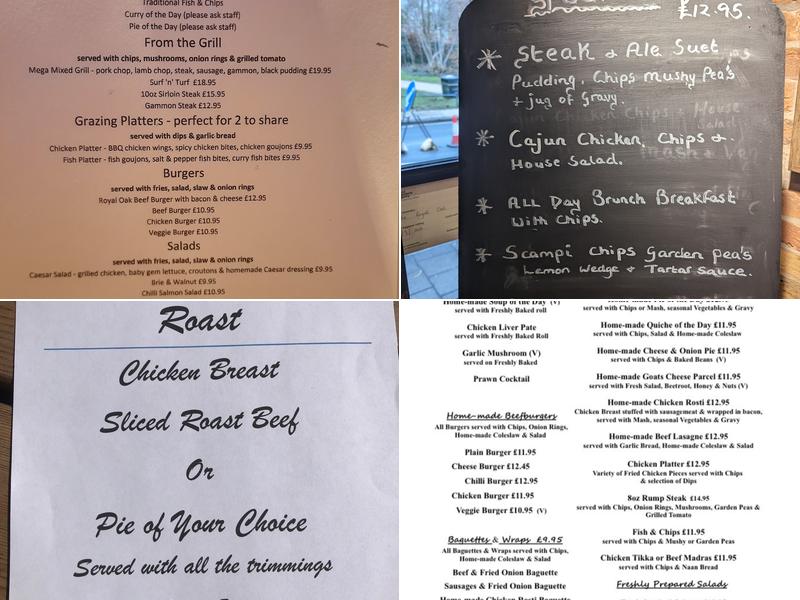 Traditional Fish & Chips
Curry of the Day (please ask staff)
Pie of the Day (please ask staff)
From the Grill
served with chips, mushrooms, onion rings & grilled tomato
Mega Mixed Grill - pork chop, lamb chop, steak, sausage, gammon, black pudding £19.95
Surf 'n' Turf £18.95
10oz Sirloin Steak £15.95
Gammon Steak £12.95
Grazing Platters - perfect for 2 to share
served with dips & garlic bread
Chicken Platter - BBQ chicken wings, spicy chicken bites, chicken goujons £9.95
Fish Platter - fish goujons, salt & pepper fish bites, curry fish bites £9.95
Burgers
served with fries, salad, slaw & onion rings
Royal Oak Beef Burger with bacon & cheese £12.95
Beef Burger £10.95
Chicken Burger £10.95
Veggie Burger £10.95
Salads
served with fries, salad, slaw & onion rings
Caesar Salad - grilled chicken, baby gem lettuce, croutons & homemade Caesar dressing £9.95
Brie & Walnut £9.95
Chilli Salmon Salad £10.95
£12.95.
* Steak & Ale Suet
Pudding, Chips Mushy Pea's
+ jug of Gravy.
* Cajun Chicken, Chips &
House Salad.
* ALL Day Brunch Breakfast
With Chips.
* Scampi Chips Garden Pea's
Lemon Wedge & Tartar Sauce.
Roast
Chicken Breast
Sliced Roast Beef
Or
Pie of Your Choice
Served with all the trimmings
Home-made Soup of the Day (V)
served with Freshly Baked roll
Chicken Liver Pate
served with Freshly Baked Roll
Garlic Mushroom (V)
served on Freshly Baked
Prawn Cocktail
Home-made Beefburgers
All Burgers served with Chips, Onion Rings,
Home-made Coleslaw & Salad
Plain Burger £11.95
Cheese Burger £12.45
Chilli Burger £12.95
Chicken Burger £11.95
Veggie Burger £10.95 (V)
Baguettes & Wraps £9.95
All Baguettes & Wraps served with Chips,
Home-made Coleslaw & Salad
Beef & Fried Onion Baguette
Sausages & Fried Onion Baguette
Home-made Chicken Rosti Baguette
served with Chips or Mash, seasonal Vegetables & Gravy
Home-made Quiche of the Day £11.95
served with Chips, Salad & Home-made Coleslaw
Home-made Cheese & Onion Pie £11.95
served with Chips & Baked Beans (V)
Home-made Goats Cheese Parcel £11.95
served with Fresh Salad, Beetroot, Honey & Nuts (V)
Home-made Chicken Rosti £12.95
Chicken Breast stuffed with sausagemeat & wrapped in bacon,
served with Mash, seasonal Vegetables & Gravy
Home-made Beef Lasagne £12.95
served with Garlic Bread, Home-made Coleslaw & Salad
Chicken Platter £12.95
Variety of Fried Chicken Pieces served with Chips
& selection of Dips
8oz Rump Steak £14.95
served with Chips, Onion Rings, Mushrooms, Garden Peas &
Grilled Tomato
Fish & Chips £11.95
served with Chips & Mushy or Garden Peas
Chicken Tikka or Beef Madras £11.95
served with Chips & Naan Bread
Freshly Prepared Salads